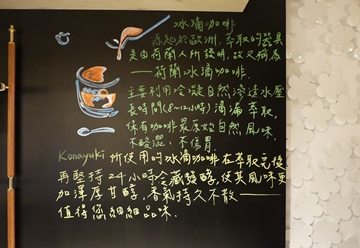 冰滴咖啡
源起於歐洲，萃取的器具
是由荷蘭人所發明，故又稱為
——荷蘭冰滴咖啡．
主要利用冷凝自然滲透水壓
長時間(8~12小時)滴滴萃取，
保有咖啡最原始自然風味．
不酸澀．不傷胃
Konayuki 所使用的冰滴咖啡在萃取完後
再堅持24小時冷藏發酵，使其風味更
加渾厚甘醇．香氣持久不散——
值得您細細品味．